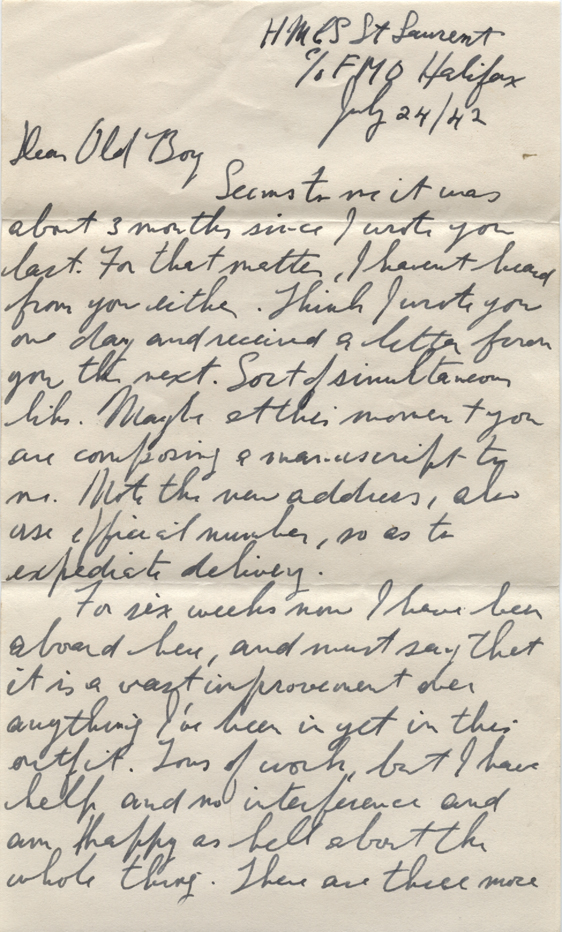 HMCS St Laurent
c/o FMO Halifax
July 24/42
Dear Old Boy
Seems to me it was
about 3 months since I wrote you
last. For that matter, I havent heard
from you either. Think I wrote you
one day and received a letter from
you the next. Sort of simultaneous
like. Maybe at this moment you
are composing a manuscript to
me. Note the new address, also
use official number, so as to
expediate delivery.
For six weeks now I have been
aboard here, and must say that
it is a vast improvement over
anything I've been in yet in this
outfit. Tons of work, but I have
help and no interference and
am happy as hell about the
whole thing. There are three more